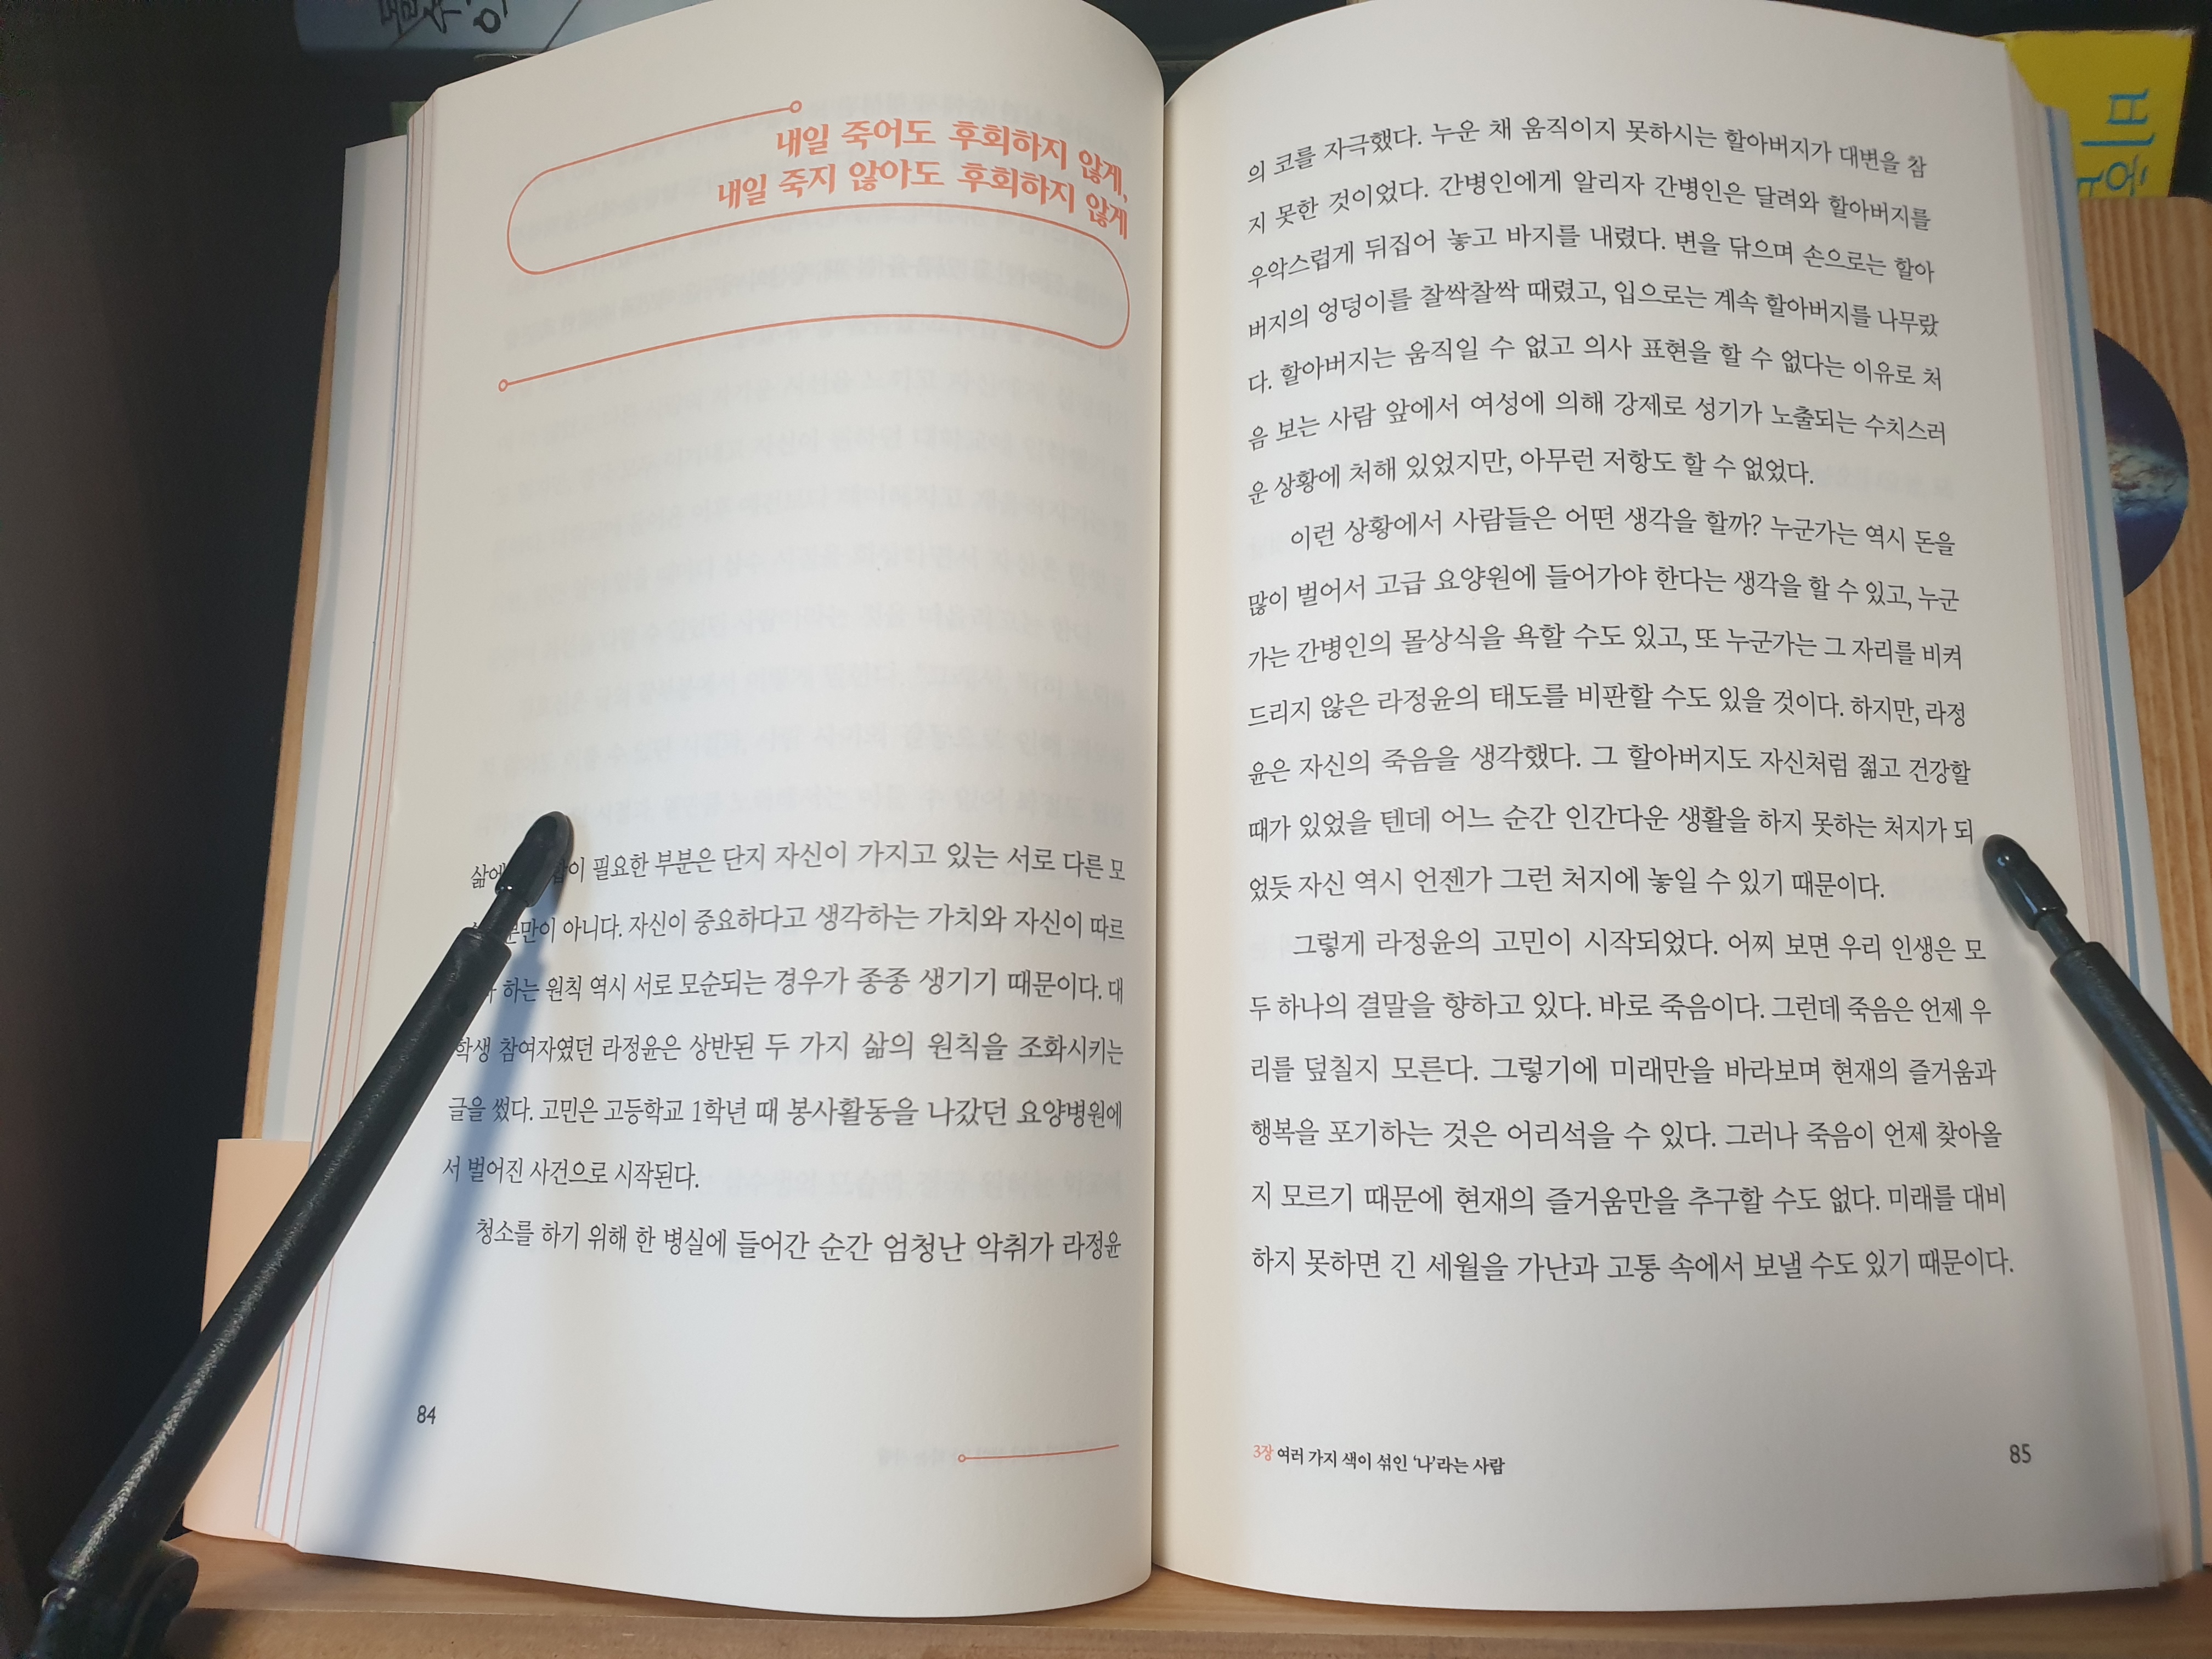 내일 죽어도 후회하지 않게,
내일 죽지 않아도 후회하지 않게
필요한 부분은 단지 자신이 가지고 있는 서로 다른 모
아니다. 자신이 중요하다고 생각하는 가치와 자신이 따르
하는 원칙 역시 서로 모순되는 경우가 종종 생기기 때문이다. 대
학생 참여자였던 라정윤은 상반된 두 가지 삶의 원칙을 조화시키는
글을 썼다. 고민은 고등학교 1학년 때 봉사활동을 나갔던 요양병원에
서 벌어진 사건으로 시작된다.
청소를 하기 위해 한 병실에 들어간 순간 엄청난 악취가 라정윤
84
의 코를 자극했다. 누운 채 움직이지 못하시는 할아버지가 대변을 참
지 못한 것이었다. 간병인에게 알리자 간병인은 달려와 할아버지를
우악스럽게 뒤집어 놓고 바지를 내렸다. 변을 닦으며 손으로는 할아
버지의 엉덩이를 찰싹찰싹 때렸고, 입으로는 계속 할아버지를 나무랐
다. 할아버지는 움직일 수 없고 의사 표현을 할 수 없다는 이유로 처
음 보는 사람 앞에서 여성에 의해 강제로 성기가 노출되는 수치스러
운 상황에 처해 있었지만, 아무런 저항도 할 수 없었다.
이런 상황에서 사람들은 어떤 생각을 할까? 누군가는 역시 돈을
많이 벌어서 고급 요양원에 들어가야 한다는 생각을 할 수 있고, 누군
가는 간병인의 몰상식을 욕할 수도 있고, 또 누군가는 그 자리를 비켜
드리지 않은 라정윤의 태도를 비판할 수도 있을 것이다. 하지만, 라정
윤은 자신의 죽음을 생각했다. 그 할아버지도 자신처럼 젊고 건강할
때가 있었을 텐데 어느 순간 인간다운 생활을 하지 못하는 처지가 되
었듯 자신 역시 언젠가 그런 처지에 놓일 수 있기 때문이다.
그렇게 라정윤의 고민이 시작되었다. 어찌 보면 우리 인생은 모
두 하나의 결말을 향하고 있다. 바로 죽음이다. 그런데 죽음은 언제 우
리를 덮칠지 모른다. 그렇기에 미래만을 바라보며 현재의 즐거움과
행복을 포기하는 것은 어리석을 수 있다. 그러나 죽음이 언제 찾아올
지 모르기 때문에 현재의 즐거움만을 추구할 수도 없다. 미래를 대비
하지 못하면 긴 세월을 가난과 고통 속에서 보낼 수도 있기 때문이다.
3장 여러 가지 색이 섞인 ‘나’라는 사람
85